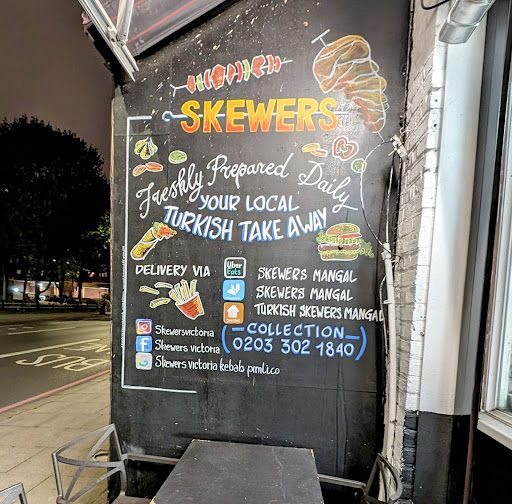 SKEWERS
Freshly Prepared Daily
YOUR LOCAL
TURKISH TAKE AWAY
DELIVERY VIA
Uber Eats SKEWERS MANGAL
SKEWERS MANGAL
TURKISH SKEWERS MANGAL
COLLECTION
(0203 302 1840)
Skewersvictoria
Skewers victoria
Skewers victoria kebab pmli.co
BUS